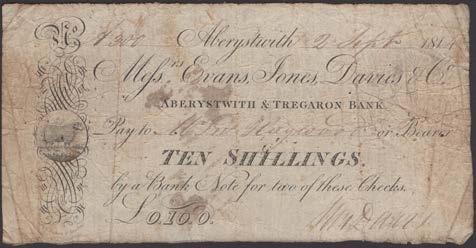 No Aberystwith 2 Sept. 1814
Messrs. Evans, Jones, Davies & Co.
ABERYSTWITH & TREGARON BANK.
Pay to or Bearer
TEN SHILLINGS.
by a Bank Note for two of these Checks.
£0.10.0.